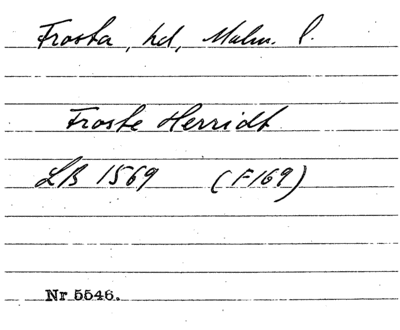 Frosta, hd, Malm. l.
Froste Herridt
LB 1569 (F169)
Nr 5546.